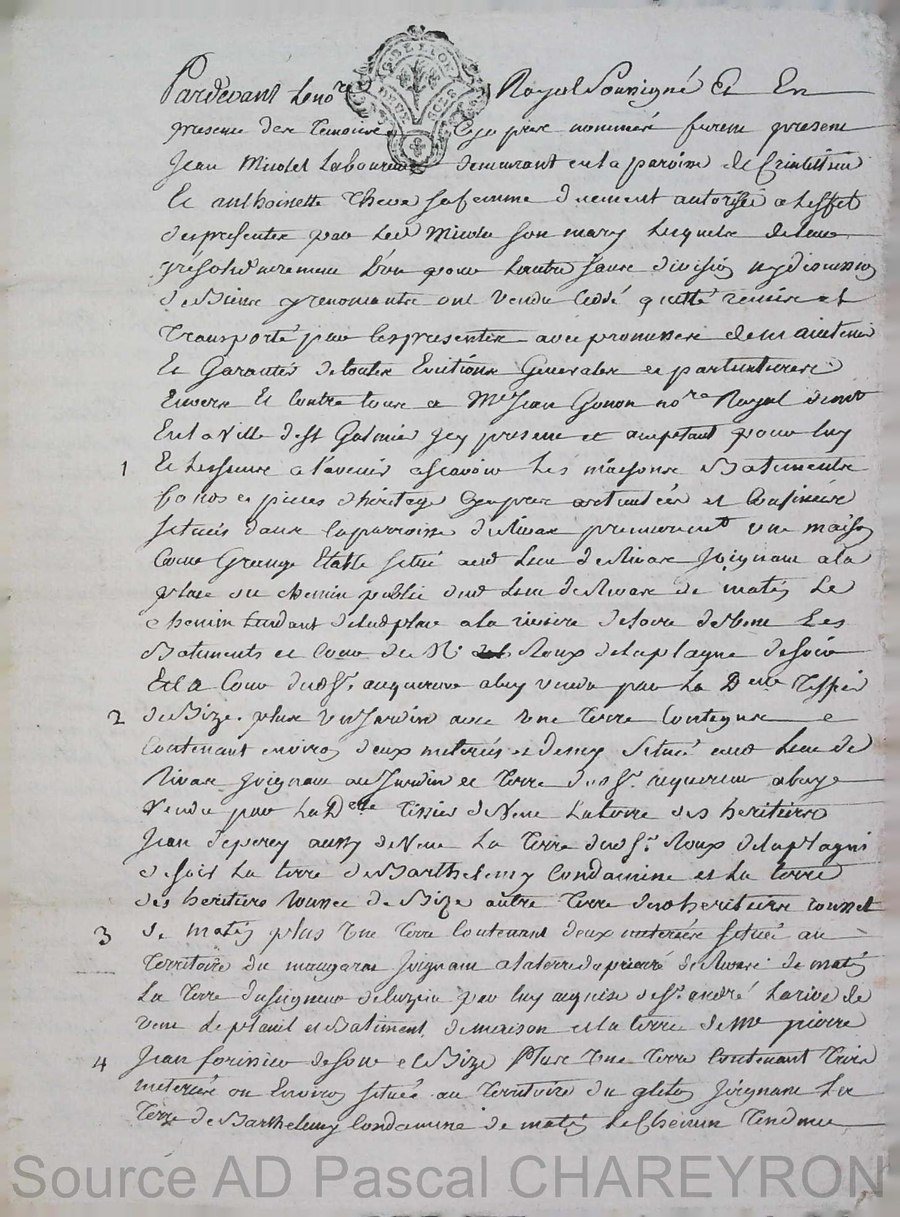 Pardevant le no.re Royal Soussigné Et En
presence des temoins cy apres nommés furent present
Jean Micolet Laboureur demeurant en la paroisse de
Et anthoinette sa femme duement autorisée a leffet
des presentes par led Micolet son mary lesquels de leur
lun pour lautre sans division ny discussion
de Biens y renoncantes ont vendu Ceddé quitté remis et
transporté par les presentes avec promesse de maintenir
Et Garantir de toutes Evictions Generales et particulieres
Envers Et Contre tous a Me Jean Gonon no.re Royal
En la Ville de St Galmier icy present et acceptant pour luy
1 Et les siens a l'avenir ascavoir les maisons Batiments
fonds et pieces dheritage cy apres articulées et Confinées
situés dans la parroisse de Rivas premierement une maison
Cour Grange Etable situé aud Lieu de Rivas Joignant a la
place ou chemin public dud Lieu de Rivas de matin Le
chemin tendant de lad place a la riviere de Loire de Vent Les
Batiments et Cour du Sr Roux de la plagne de soir
Et la Cour dud Sr. acquereur a luy vendu par La Delle Tissier
2 de Bize. plus un Jardin avec une terre Contigue
Contenant environ deux meterées et demy situé aud Lieu de
Rivas Joignant au Jardin et Terre dud Sr. acquereur a luy
Vendu par La Delle Tissier de Vent La terre des heritiers
Jean deperey aussy de Vent La Terre dud Sr. Roux de la plagni
de soir La terre de Barthelemy Condamine et La terre
des heritiers de Bize autre Terre desd heritiers
3 de matin plus Une Terre Contenant deux meterées située au
Territoire du Joignant a la terre de de Rivas de matin
La Terre du seigneur de par luy acquise de Sr. andré Larive de
vent Le et Batiment de maison et la terre de Me pierre
4 Jean de soir et de Bize Plus Une Terre Contenant Trois
meterées ou Environ située au Territoire du Joignant La
Terre de Barthelemy Condamine de matin Le Chemin Tendant
Source AD Pascal CHAREYRON